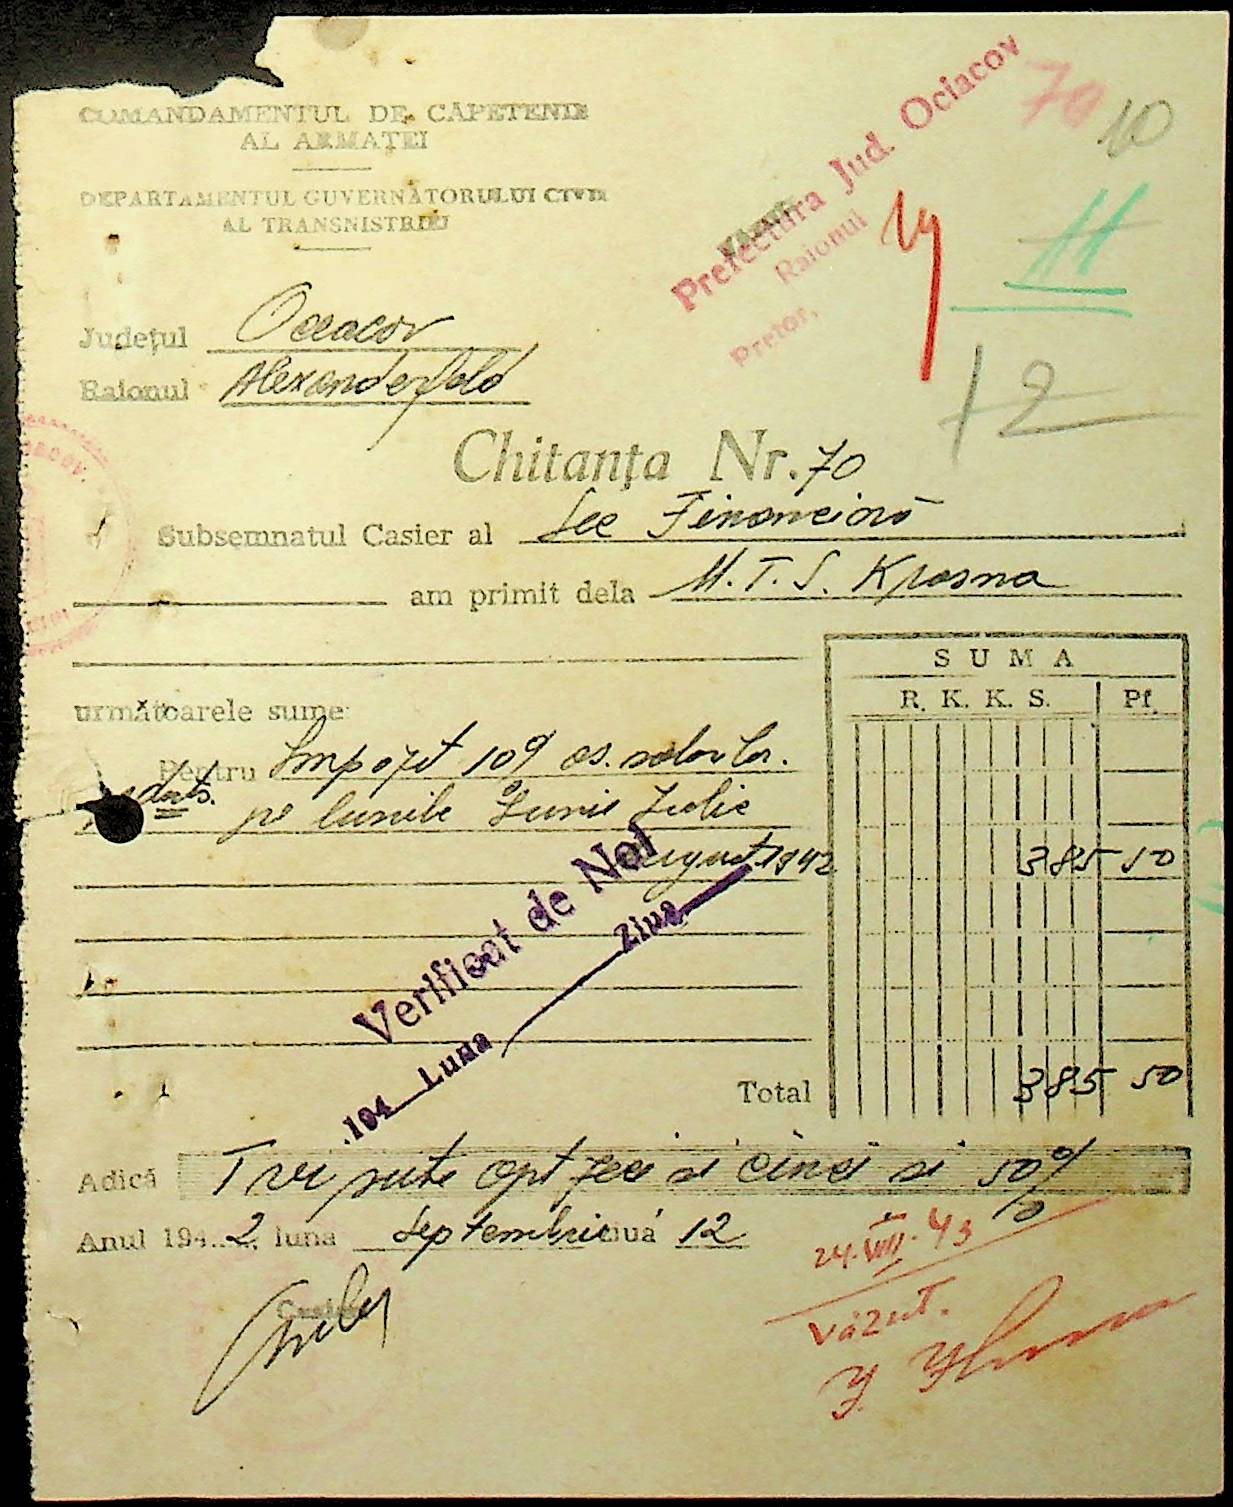 COMANDAMENTUL DE CAPETENIE
AL ARMATEI
DEPARTAMENTUL GUVERNĂTORULUI CIVIL
AL TRANSNISTRIEI
Prefectura Jud. Ociacov
Raionul
Pretor,
70
10
11
12
Județul Oceacov
Raionul Alexanderfeld
Chitanța Nr. 70
Subsemnatul Casier al Sec Financiară
am primit dela M.T.S. Krasna
SUMA
R. K. K. S. Pf.
următoarele sume
Pentru Impozit 10%
pe lunile Iunie Iulie
August 1942 385 50
Verificat de Noi
194 Luna Ziua
Total 385 50
Adică Trei sute opt zeci si cinci si 50%
Anul 1942 luna Septembrie ziua 12
Casier
24.VIII.43
văzut.